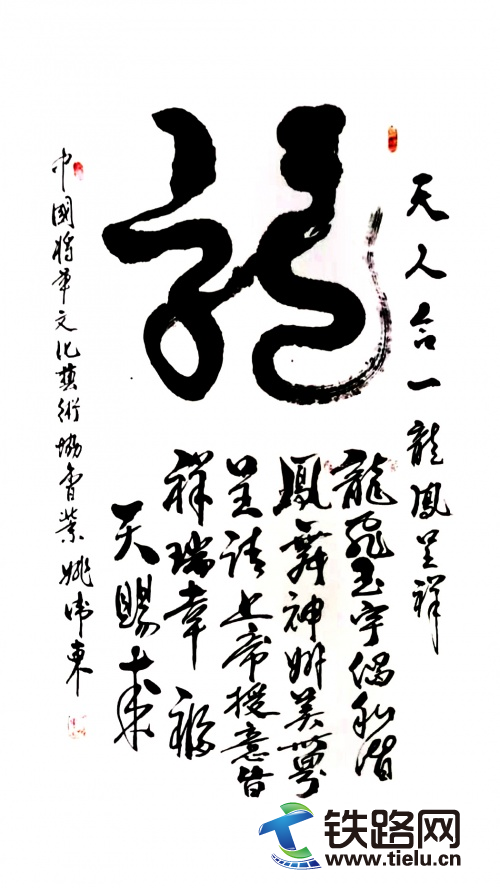 天人合一龍鳳呈祥
龍
龍飛玉宇偶和谐
鳳舞神州美世界
呈請上帝授意旨
祥瑞幸福
天賜来
中國将军文化藝術協會業姚伟東
铁路网
www.tielu.cn